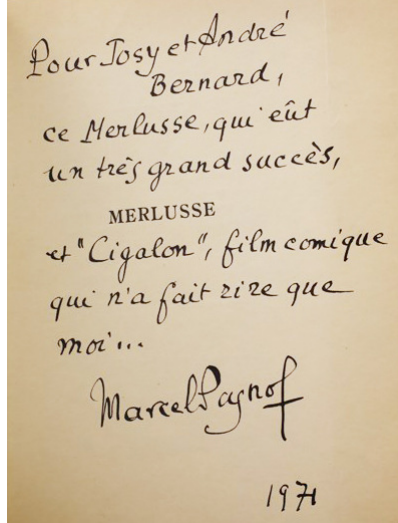 Pour Josy et André
Bernard,
ce Merlusse, qui eût
un très grand succès,
MERLUSSE
et "Cigalon", film comique
qui n'a fait rire que
moi...
Marcel Pagnol
1971